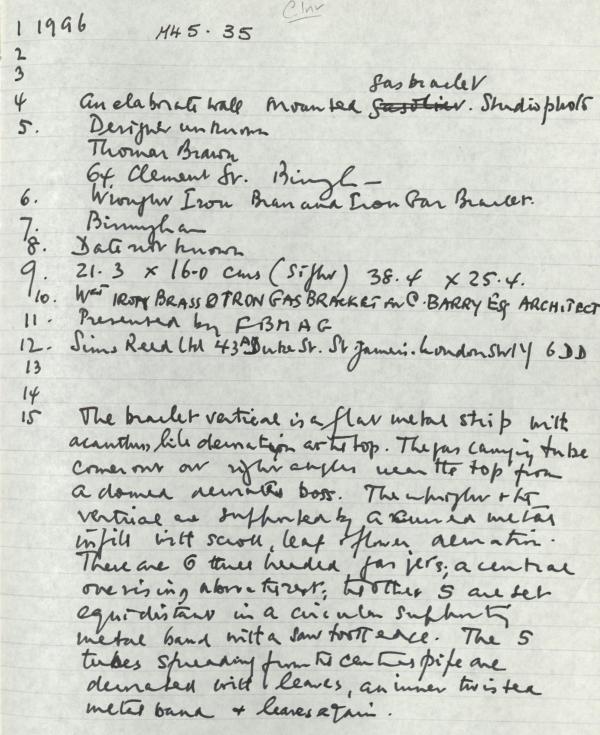 C. Inv
1 1996 M45.35
2
3
gas bracket
4 An elaborate wall mounted gasolier. Studio photo
5. Designer unknown
Thomas Brawn
64 Clement St. Birmgh
6. Wrought Iron Brass and Iron Gas Bracket.
7. Birmingham
8. Date not known
9. 21.3 x 16.0 cms (Sight) 38.4 x 25.4.
10. Wgt IRON BRASS & IRON GAS BRACKET C. BARRY Esq ARCHITECT
11. Presented by FBMAG
12. Sims Reed Ltd 43A Duke St. St James. London SW1Y 6DD
13
14
15 The bracket vertical is a flat metal strip with
acanthus like decoration at the top. The gas carrying tube
comes out at right angles near the top from
a domed decorated boss. The upright & the
vertical are supported by a metal
infill with scroll, leaf & flower decoration.
There are 6 three headed gas jets, a central
one rising above the rest, the other 5 are set
equidistant in a circular supporting
metal band with a saw tooth edge. The 5
tubes spreading from the centre pipe are
decorated with leaves, an inner twisted
metal band & leaves again.